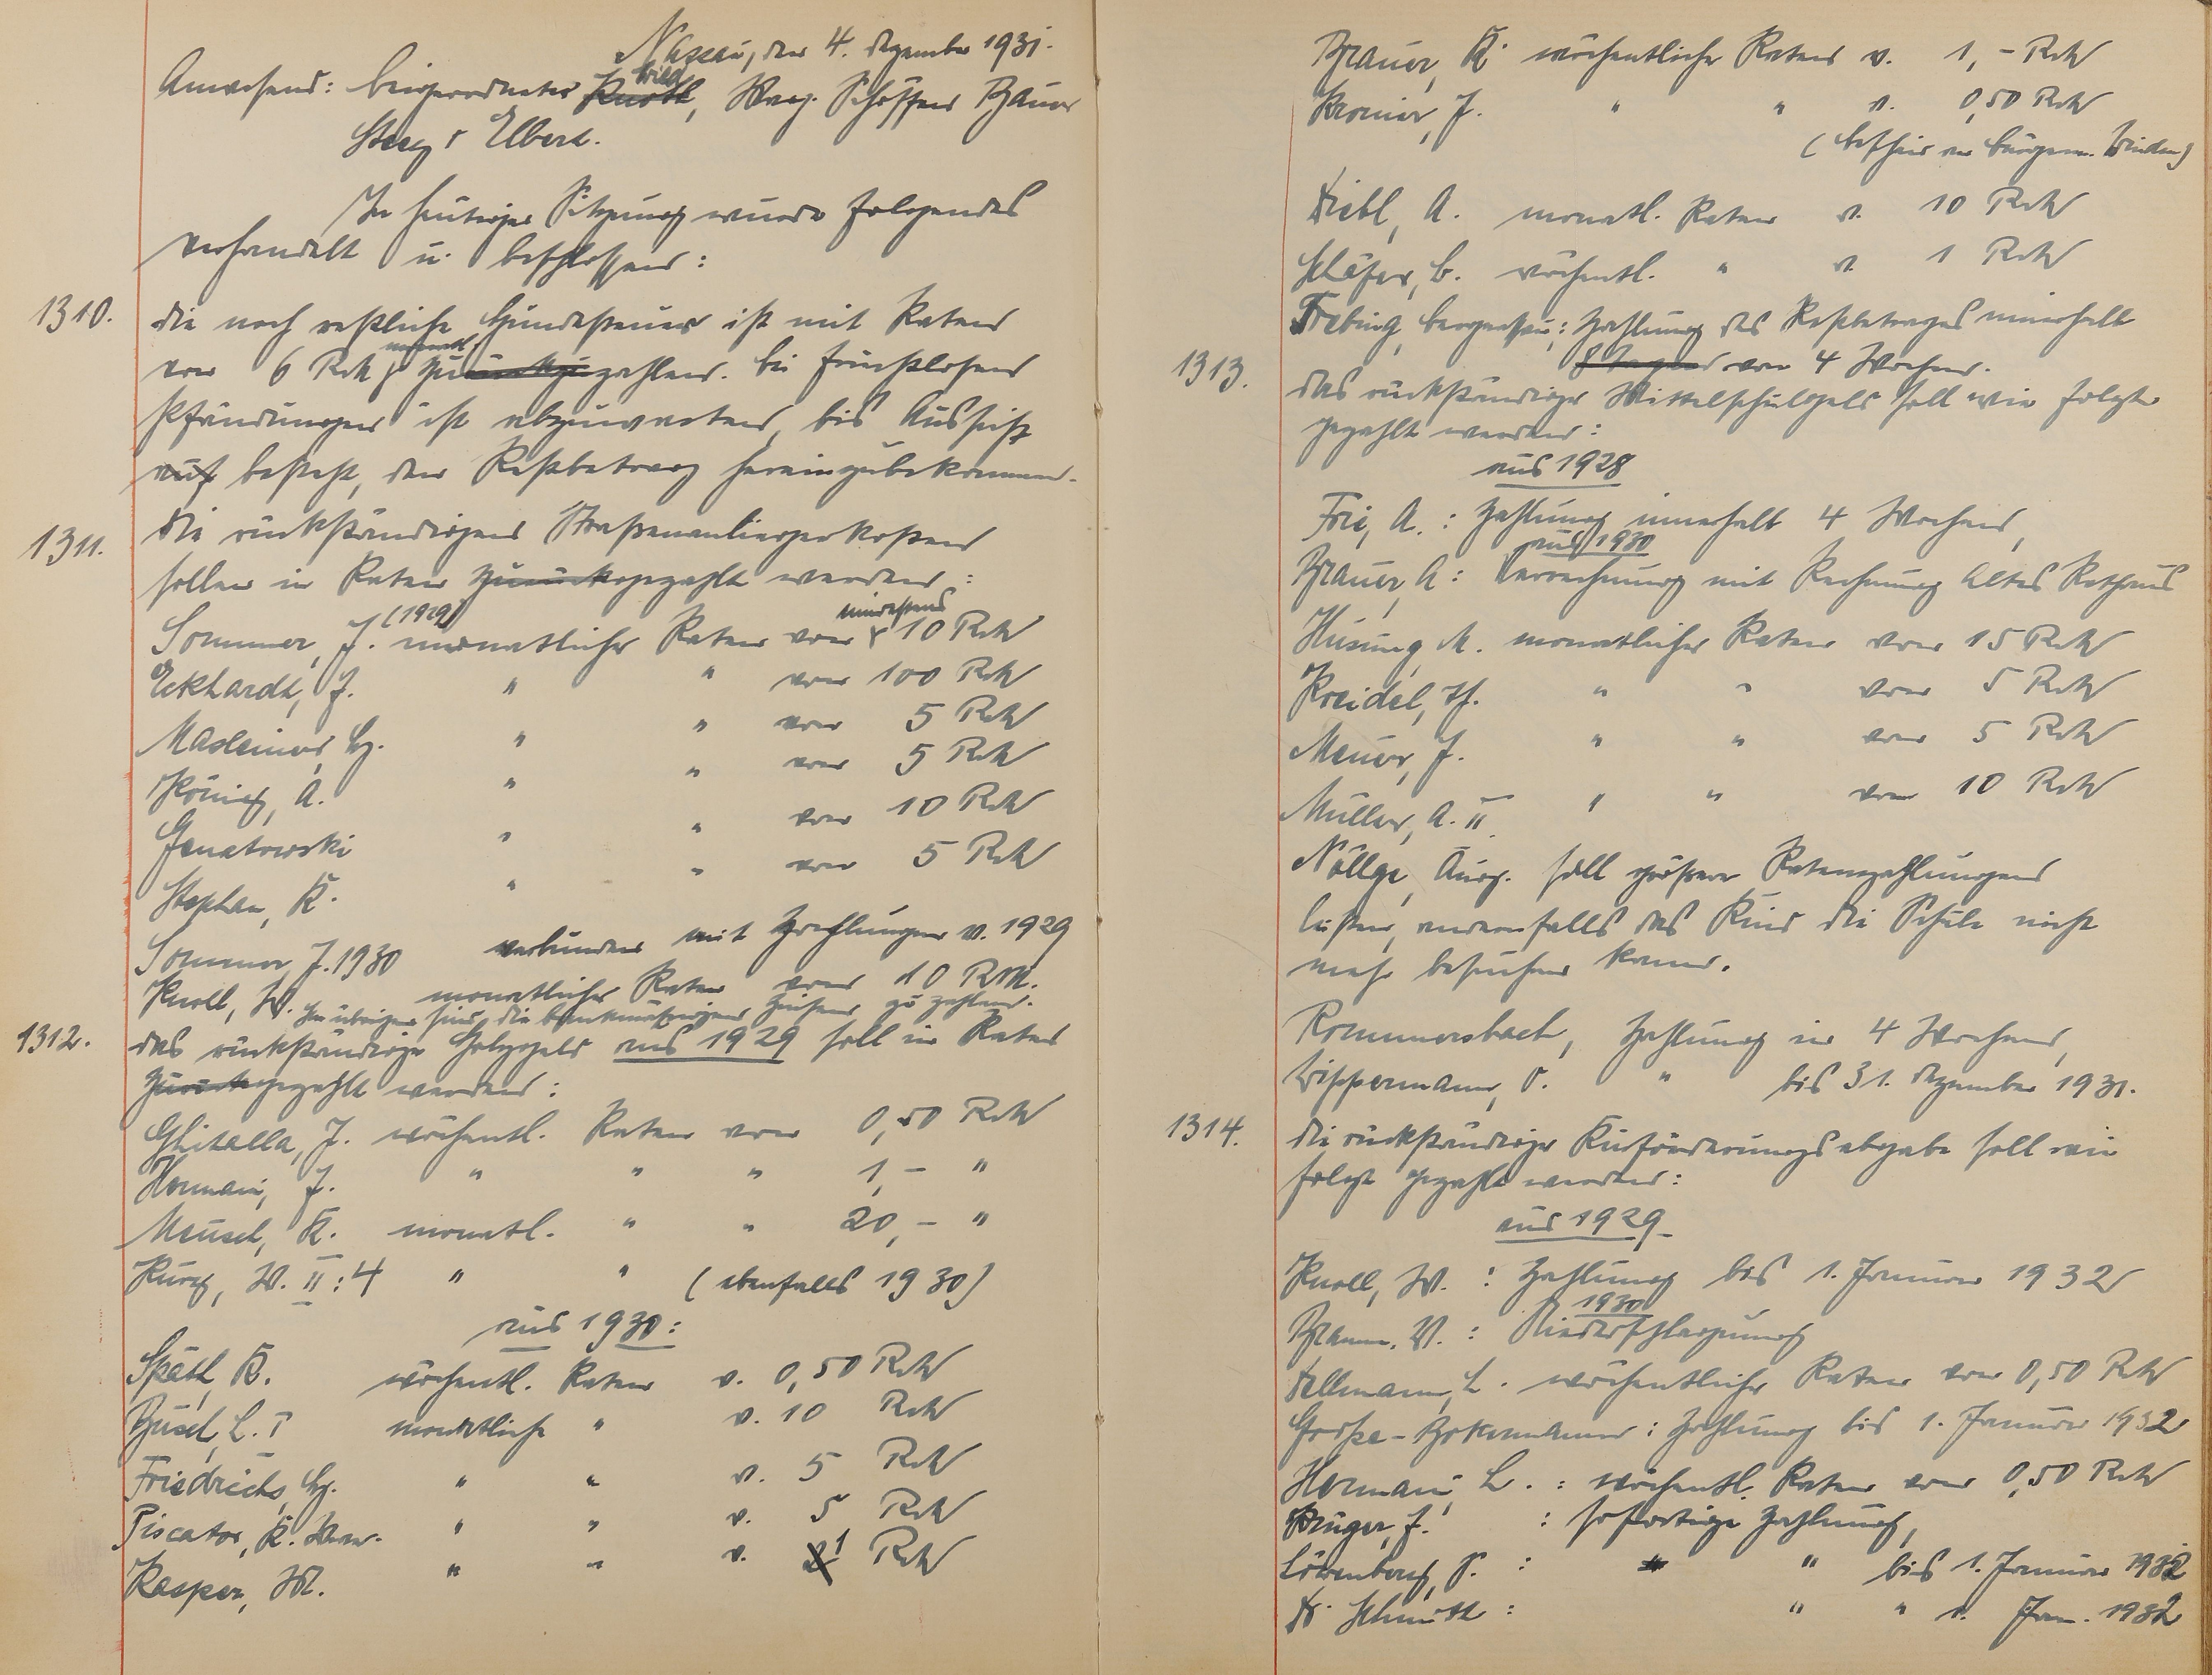 Nassau, den 4. Dezember 1931.
Anwesend: Beigeordneter, Mag. Schöffen Bauer
Steeg u. Elbert.
In heutiger Sitzung wurde folgendes
verhandelt u. beschlossen:
1310. Die noch restliche Hundesteuer ist mit Raten
von 6 RM monatl. zu zahlen. Bei fruchtlosen
Pfändungen ist abzuwarten, bis Aussicht
auf besteht, den Restbetrag hereinzubekommen.
1311. Die rückständigen Straßenanliegerkosten
sollen in Raten zurückgezahlt werden:
Sommer, J. (1929) monatliche Raten von mindestens 10 RM
Eckhardt, J. " " von 100 RM
Masleimer, Hg. " " von 5 RM
König, A. " " von 5 RM
Genatowski " " von 10 RM
Stephan, K. " " von 5 RM
Sommer, J. 1930 verbunden mit Zahlungen v. 1929
Knoll, W. monatliche Raten von 10 RM.
Im übrigen sind die bankmäßigen Zinsen zu zahlen.
1312. Das rückständige Holzgeld aus 1929 soll in Raten
zurückgezahlt werden:
Ghitalla, J. wöchentl. Raten von 0,50 RM
Hermani, J. " " " 1,- "
Meusch, K. monatl. " " 20,- "
Kurz, W. II: 4 " " (ebenfalls 1930)
aus 1930:
Späth, K. wöchentl. Raten v. 0,50 RM
Busch, L. I monatliche " v. 10 RM
Friedrichs, Hg. " " v. 5 RM
Piscator, K. Wwe. " " v. 5 RM
Kasper, W. " " v. 1 RM
Brauer, K. wöchentliche Raten v. 1,- RM
Kromer, J. " " v. 0,50 RM
Diebl, A. monatl. Raten v. 10 RM
Schäfer, C. wöchentl. " v. 1 RM
Trebing, Bergnassau: Zahlung des Restbetrages innerhalb
8 Tagen von 4 Wochen.
1313. Das rückständige Mittelschulgeld soll wie folgt
gezahlt werden:
aus 1928
Frie, A.: Zahlung innerhalb 4 Wochen,
aus 1930
Brauer, A: Verrechnung mit Rechnung Altes Rathaus
Husung, M. monatliche Raten von 15 RM
Kreidel, H. " " von 5 RM
Meuer, J. " " von 5 RM
Müller, A. II. " " von 10 RM
Nöllge, Aug. soll größere Ratenzahlungen
leisten, andernfalls das Kind die Schule nicht
mehr besuchen kann.
Rommersbach, Zahlung in 4 Wochen,
Wippermann, O. " bis 31. Dezember 1931.
1314. Die rückständige Kurförderungsabgabe soll wie
folgt gezahlt werden:
aus 1929
Knoll, W.: Zahlung bis 1. Januar 1932
1930
Braun, W.: Niederschlagung
Dellmann, L. wöchentliche Raten von 0,50 RM
Große-Bokermann: Zahlung bis 1. Januar 1932
Hermani, L.: wöchentl. Raten von 0,50 RM
Krüger, J.: sofortige Zahlung,
Löwenberg, S.: " bis 1. Januar 1932
Dr. Schmitt: " " 1. Jan. 1932